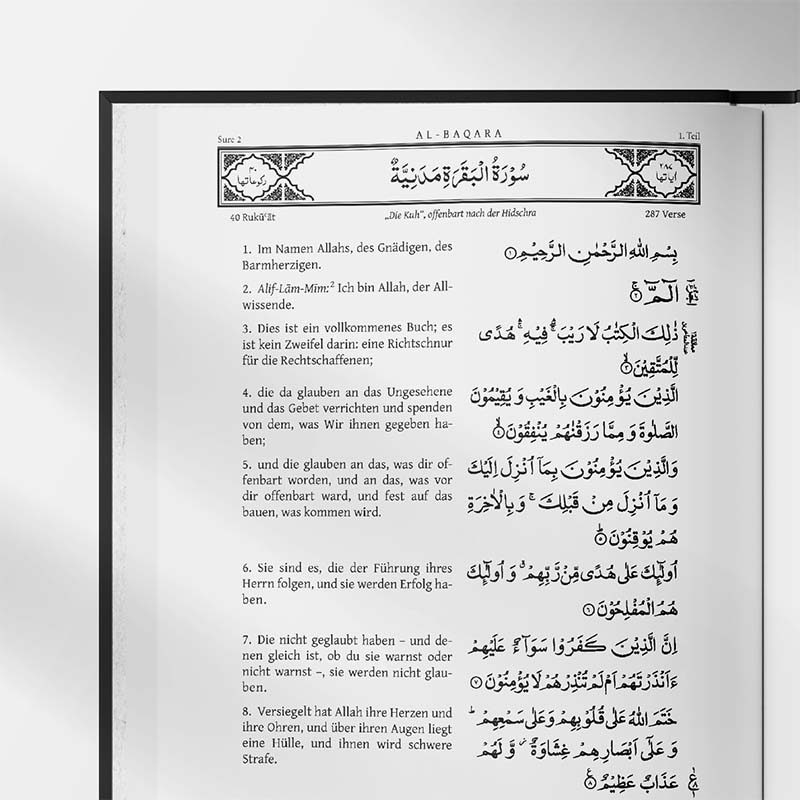 Sure 2
AL-BAQARA
1. Teil
٤٠ رکوعاتها
سُوْرَةُ الْبَقَرَةِ مَدَنِيَّةٌ
٢٨٧ اٰیاتها
40 Rukūʿāt
„Die Kuh“, offenbart nach der Hidschra
287 Verse
1. Im Namen Allahs, des Gnädigen, des
Barmherzigen.
2. Alif-Lām-Mīm:2 Ich bin Allah, der All-
wissende.
3. Dies ist ein vollkommenes Buch; es
ist kein Zweifel darin: eine Richtschnur
für die Rechtschaffenen;
4. die da glauben an das Ungesehene
und das Gebet verrichten und spenden
von dem, was Wir ihnen gegeben ha-
ben;
5. und die glauben an das, was dir of-
fenbart worden, und an das, was vor
dir offenbart ward, und fest auf das
bauen, was kommen wird.
6. Sie sind es, die der Führung ihres
Herrn folgen, und sie werden Erfolg ha-
ben.
7. Die nicht geglaubt haben – und de-
nen gleich ist, ob du sie warnst oder
nicht warnst –, sie werden nicht glau-
ben.
8. Versiegelt hat Allah ihre Herzen und
ihre Ohren, und über ihren Augen liegt
eine Hülle, und ihnen wird schwere
Strafe.
بِسْمِ اللّٰهِ الرَّحْمٰنِ الرَّحِيْمِ ۝١
الٓمّٓ ۝٢
ذٰلِكَ الْكِتٰبُ لَا رَيْبَ ۛ فِيْهِ ۛ هُدًى
لِّلْمُتَّقِيْنَ ۝٣
الَّذِيْنَ يُؤْمِنُوْنَ بِالْغَيْبِ وَيُقِيْمُوْنَ
الصَّلٰوةَ وَمِمَّا رَزَقْنٰهُمْ يُنْفِقُوْنَ ۝٤
وَالَّذِيْنَ يُؤْمِنُوْنَ بِمَآ اُنْزِلَ اِلَيْكَ
وَمَآ اُنْزِلَ مِنْ قَبْلِكَ ۚ وَبِالْاٰخِرَةِ
هُمْ يُوْقِنُوْنَ ۝٥
اُولٰٓئِكَ عَلٰى هُدًى مِّنْ رَّبِّهِمْ ۙ وَاُولٰٓئِكَ
هُمُ الْمُفْلِحُوْنَ ۝٦
اِنَّ الَّذِيْنَ كَفَرُوْا سَوَآءٌ عَلَيْهِمْ
ءَاَنْذَرْتَهُمْ اَمْ لَمْ تُنْذِرْهُمْ لَا يُؤْمِنُوْنَ ۝٧
خَتَمَ اللّٰهُ عَلٰى قُلُوْبِهِمْ وَعَلٰى سَمْعِهِمْ ؕ
وَعَلٰٓى اَبْصَارِهِمْ غِشَاوَةٌ ۫ وَّلَهُمْ
عَذَابٌ عَظِيْمٌ ۝٨